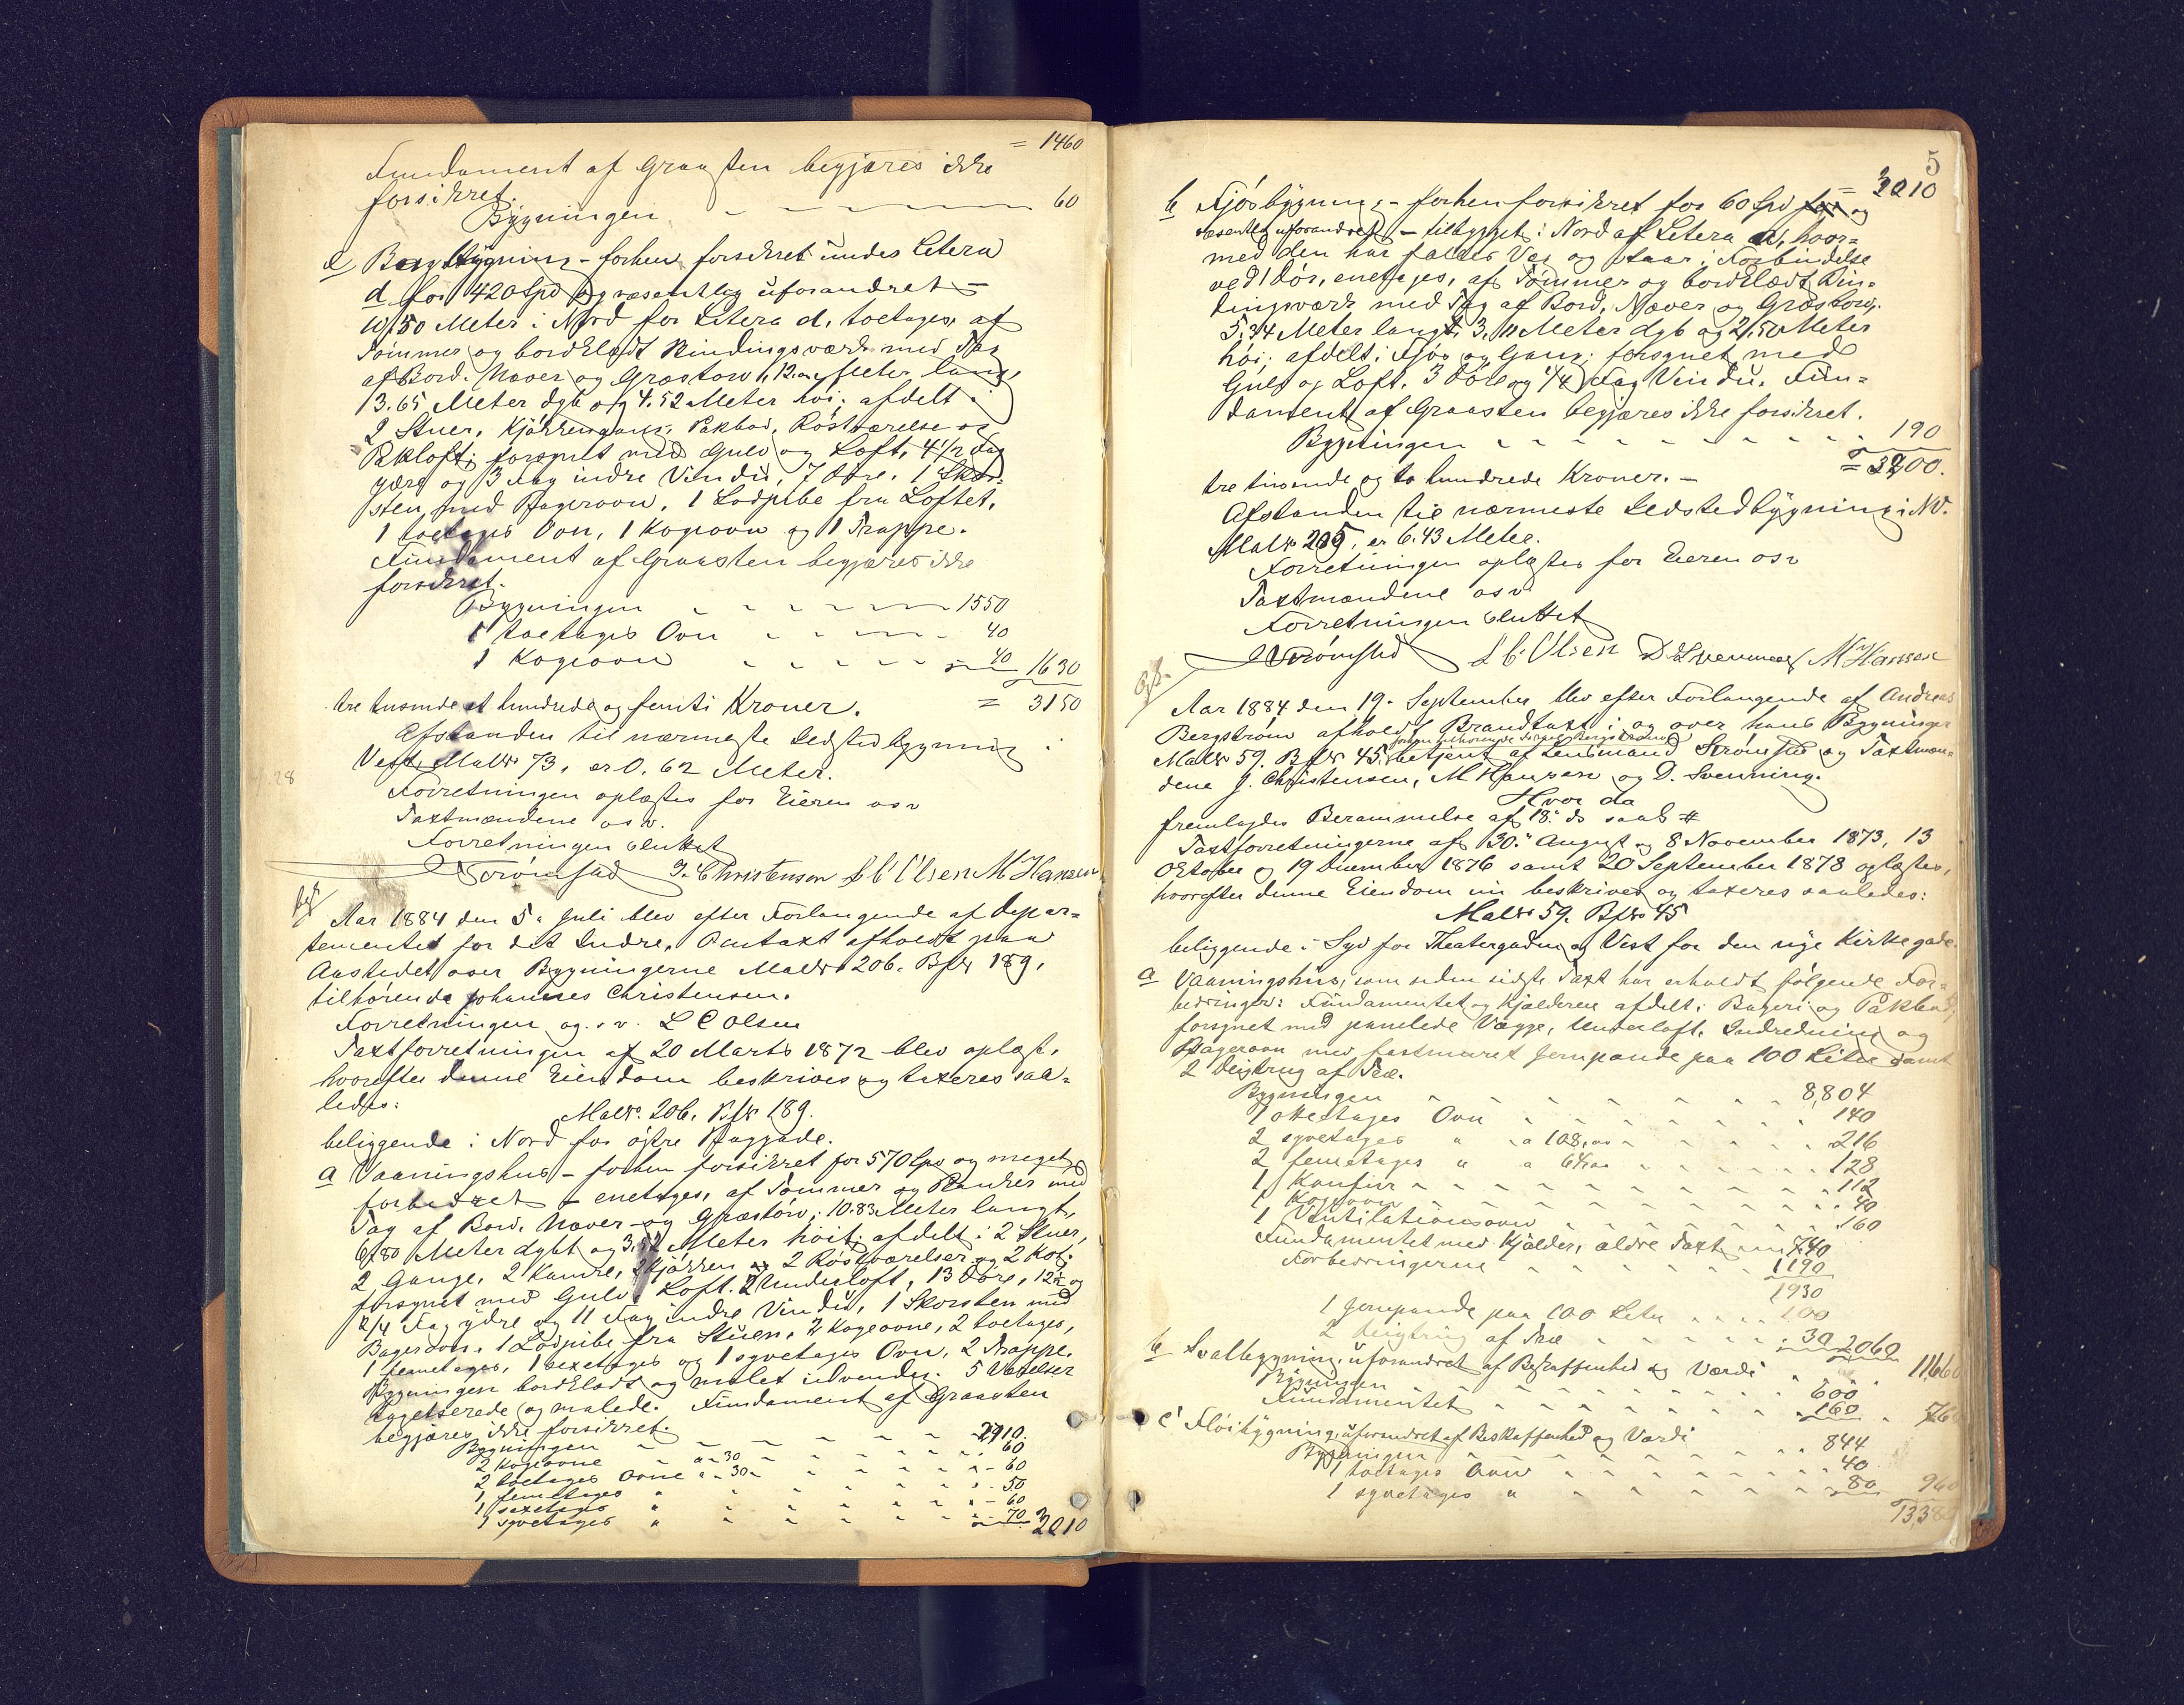 = 1460
Fundament af Graasten begjæres ikke
forsikret.
Bygningen 60
e Bagbygning - forhen forsikret under Litera
d for 420 Spd og væsentlig uforandret -
10.50 Meter i Nord for Litera d, toetages af
Tømmer og bordklædt Bindingsværk med Tag
af Bord, Næver og Græstorv, Meter lang,
3.65 Meter dyb og 4.52 Meter høi; afdelt i
2 Stuer, Kjøkkengang, Pakbod, Røstværelse og
Pakloft; forsynet med Gulv og Loft, 4 1/2 Fag
ydre og 3 Fag indre Vindu, 7 Døre, 1 Skor-
sten med Bagerovn, 1 Lodpibe fra Loftet,
1 toetages Ovn, 1 Kogeovn og 1 Trappe.
Fundament af Graasten begjæres ikke
forsikret.
Bygningen 1550
1 toetages Ovn 40
1 Kogeovn 40 1630
tre tusinde et hundrede og femti Kroner. = 3150
Afstanden til nærmeste Ildstedbygning i
Vest, Matr 73, er 0.62 Meter.
Forretningen oplæstes for Eieren osv
Taxtmændene osv.
Forretningen sluttet
Strømsted J. Christensen L C Olsen M Hansen
Aar 1884 den 5. Juli blev efter Forlangende af Depar-
tementet for det Indre, Omtaxt afholdt paa
Aastedet over Bygningerne Matr 206. Bfr 189,
tilhørende Johannes Christensen.
Forretningen og.s.v. L C Olsen
Taxtforretningen af 20 Marts 1872 blev oplæst,
hvorefter denne Eiendom beskrives og taxeres saa-
ledes:
Matr. 206, Bfr 189.
beliggende i Nord for østre Baggade.
a Vaaningshus - forhen forsikret for 570 Spd og meget
forbedret - enetages, af Tømmer og Planker med
Tag af Bord, Næver og Græstorv; 10.83 Meter langt,
Meter dybt og Meter høit; afdelt i 2 Stuer,
2 Gange, 2 Kamre, 2 Kjøkken og 2 Røstværelser og 2 Kot;
forsynet med Gulv, Loft, Underloft, 13 Døre, og
Fag ydre og 11 Fag indre Vindu, 1 Skorsten med
Bagerovn, 1 Lodpibe fra Stuen, 2 Kogeovne, 2 toetages,
1 femetages, 1 sexetages og 1 syvetages Ovn, 2 Trappe.
Bygningen bordklædt og malet udvendig. 5 Værelser
tapetserede og malede. Fundament af Graasten
begjæres ikke forsikret.
Bygningen
2 Kogeovne a 30 60
2 toetages Ovne a 30 60
1 femetages " 50
1 sexetages " 60
1 syvetages " 70 3010
5
= 3010
b Fjøsbygning - forhen forsikret for 60 Spd og
væsentlig uforandret - tilbygget i Nord af Litera a, hvor-
med den har fælles Væg og staar i Forbindelse
ved 1 Dør, enetages, af Tømmer og bordklædt Bin-
dingsværk med Tag af Bord, Næver og Græstorv;
5.34 Meter langt, 3.11 Meter dyb og 2.50 Meter
høi; afdelt i Fjøs og Gang; forsynet med
Gulv og Loft, 3 Døre og 1/4 Fag Vindu. Fun-
dament af Graasten begjæres ikke forsikret.
Bygningen 190
= 3200.
tre tusinde og to hundrede Kroner. -
Afstanden til nærmeste Ildstedbygning i NV.
Matr 205, er 6.43 Meter.
Forretningen oplæstes for Eieren osv
Taxtmændene osv
Forretningen sluttet
Strømsted L C Olsen D. Svenning M Hansen
Aar 1884 den 19. September blev efter Forlangende af Andreas
Bergstrøm afholdt Brandtaxt i og over hans Bygninger
Matr 59. Bfr 45, betjent af Lensmand Strømsted og Taxtmæn-
dene J. Christensen, M Hansen og D. Svenning.
Hvor da
fremlagdes Berammelse af 18. ds samt
Taxtforretningerne af 30. August og 8 November 1873, 13
Oktober og 19 December 1876 samt 20 September 1878 oplæstes,
hvorefter denne Eiendom nu beskrives og taxeres saaledes:
Matr 59. Bfr 45
beliggende i Syd for Theatergaden og Vest for den nye Kirkegade.
a Vaaningshus, som siden sidste Taxt har erholdt følgende For-
bedringer: Fundamentet og Kjælderen afdelt i Bageri og Pakbod,
forsynet med panelede Vægge, Underloft, Indredning og
Bagerovn med fastmuret Jernpande paa 100 Liter samt
2 Deigtrug af Træ.
Bygningen 8,804
1 ottetages Ovn 140
2 syvetages " a 108,00 216
2 femetages " a 64,00 128
1 Komfur 112
1 Kogeovn 40
1 Ventilationsovn 160
Fundamentet med Kjælder, ældre Taxt 740
Forbedringerne 1190
1930
1 Jernpande paa 100 Liter 100
2 Deigtrug af Træ 30 2060
b Svalbygning, uforandret af Beskaffenhed og Værdi 11660
Bygningen 600
Fundamentet 160 760
c Fløibygning, uforandret af Beskaffenhed og Værdi
Bygningen 844
1 toetages Ovn 40
1 syvetages " 80 960
1338